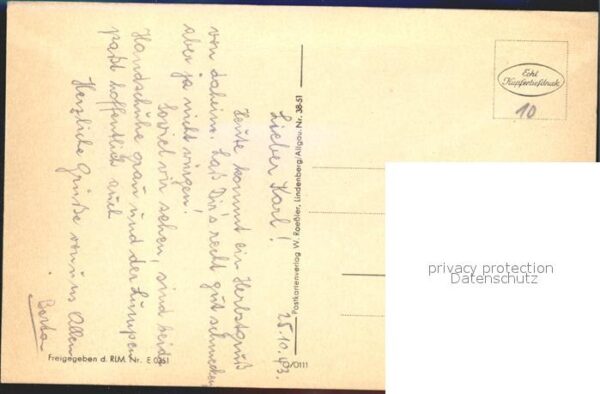 25.10.43.
Lieber Karl!
Heute kommt ein Herbstgruß
von daheim. Laß Dir's recht gut schmecken
aber ja nicht
Soviel wir sehen, sind beide
Handschuhe grau und der Lumpen
paßt hoffentlich auch
Herzliche Grüße von uns Allen
Berta
Postkartenverlag W. Roeßler, Lindenberg/Allgäu. Nr. 38-51
Freigegeben d. RLM. Nr. E 0361
C/0111
Echt
Kupfertiefdruck
10
privacy protection
Datenschutz